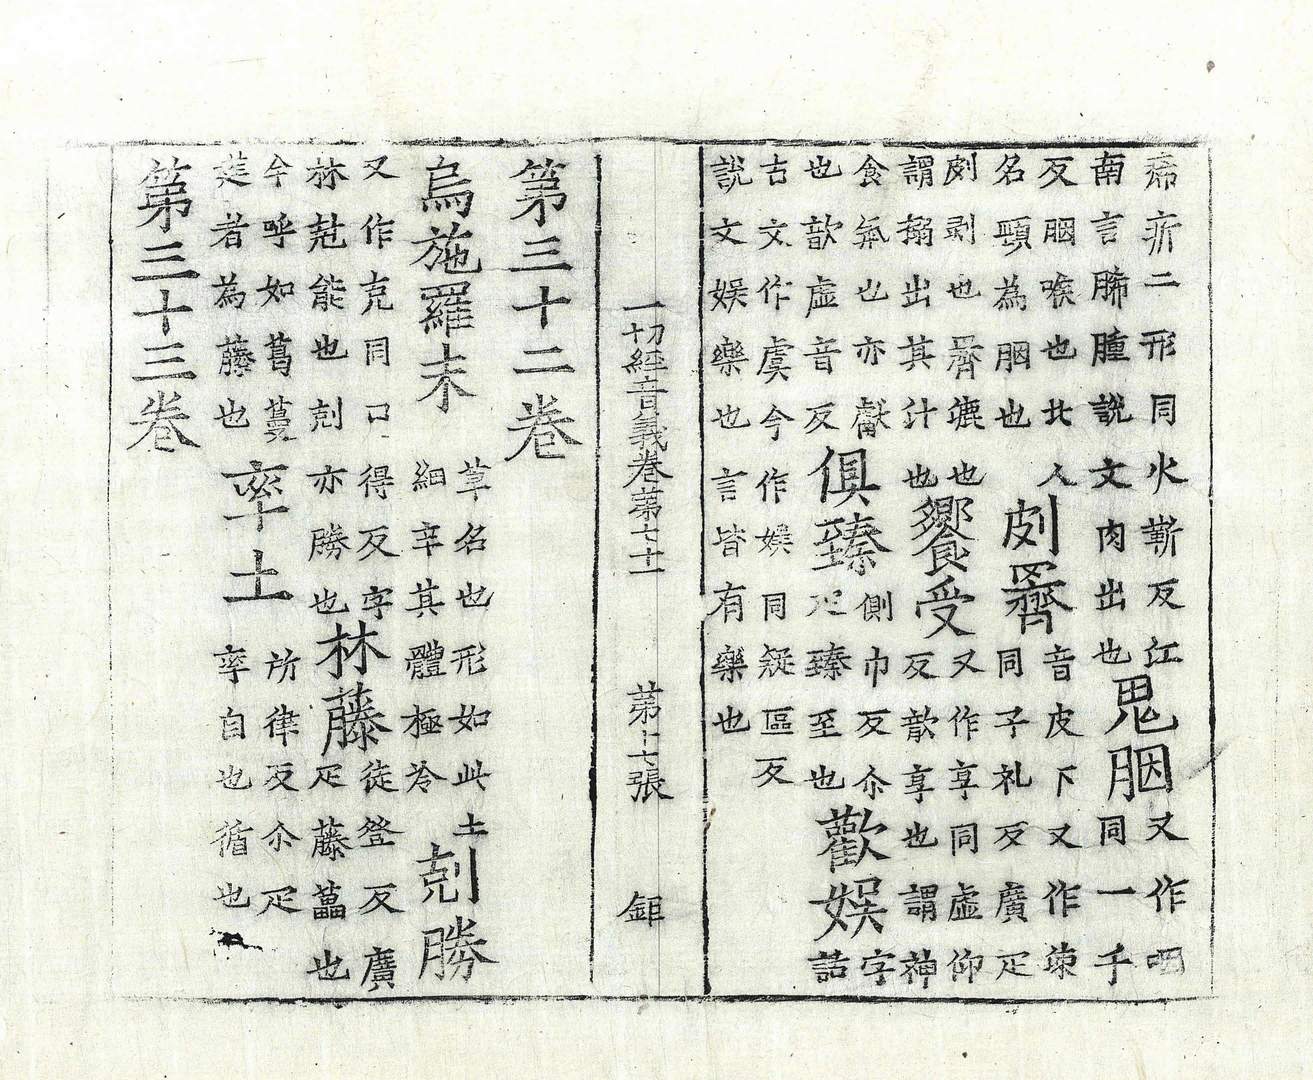 疥二形同火靳反江
南言肺腫說文肉出也
胭
又作咽
同一千
反胭喉也北人
名頸為胭也
音皮下又作
同子礼反廣疋
剥也漉也
謂搦出其汁也
饗受
又作享同虛仰
反歆享也謂神
食氣也亦獻
也歆虛音反
俱臻
側巾反尒
疋臻至也
歡娛
字
詰
古文作虞今作娛同疑區反
說文娛樂也言皆有樂也
一切經音義卷第七十一 第十七張 鉅
第三十二卷
烏施羅末
草名也形如此土
細辛其體極冷
剋勝
又作克同口得反字
林尅能也剋亦勝也
林藤
徒登反廣
疋藤藟也
今呼如葛蔓
莚者為藤也
率土
所律反尒疋
率自也循也
第三十三卷